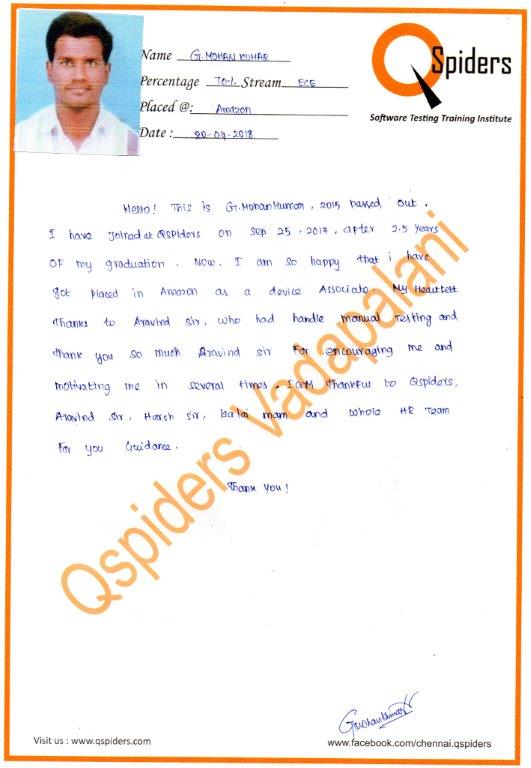 Name G.MOHAN KUMAR
Percentage 70.1. Stream ECE
Placed @: Amazon
Date : 20-04-2018
QSpiders
Software Testing Training Institute
Hello! This is G.Mohankumar, 2015 passed out.
I have joined at QSPIders on Sep 25, 2017, after 2.5 years
OF my graduation. Now, I am so happy that i have
got placed in Amazon as a device Associate. My Heartfelt
thanks to Aravind sir, who had handle manual Testing and
thank you so much Aravind sir for encouraging me and
motivating me in several times. I am thankful to Qspiders,
Aravind sir, Harsh sir, kalai mam and whole HR Team
For you Guidance.
Thank you!
Qspiders Vadapalani
Gmohankumar
Visit us : www.qspiders.com
www.facebook.com/chennai.qspiders